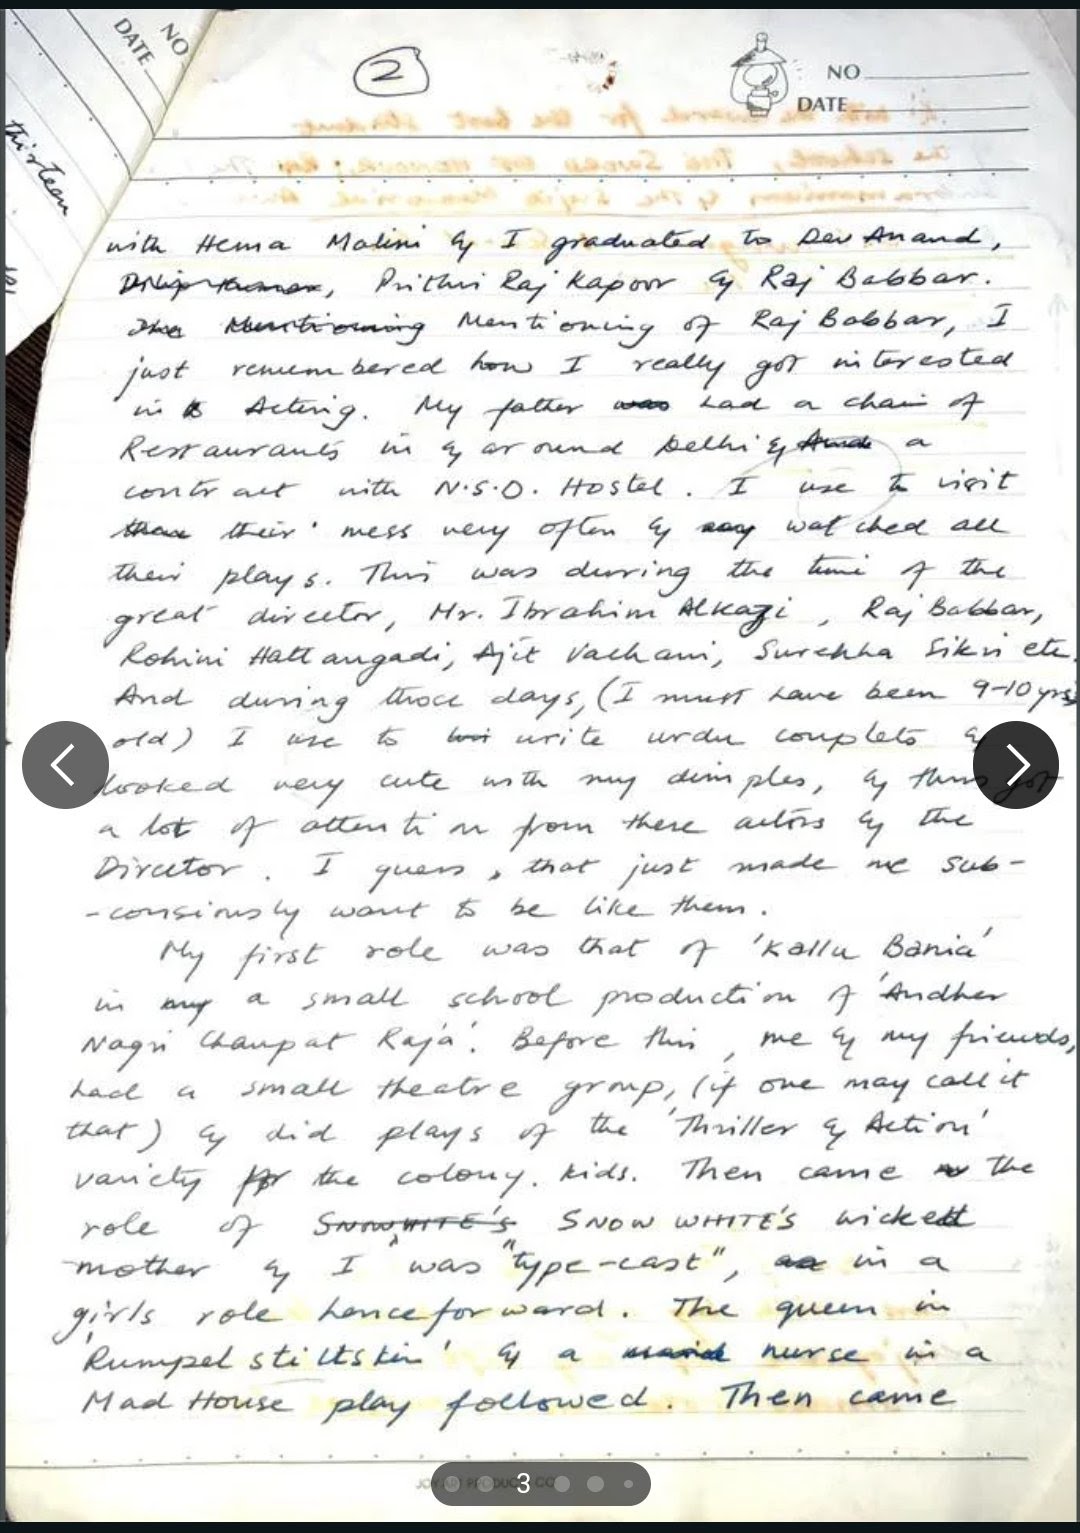 NO
DATE
thirteen
2
NO
DATE
with Hema Malini & I graduated to Dev Anand,
Dilip Kumar, Prithvi Raj Kapoor & Raj Babbar.
The Mentioning Mentioning of Raj Babbar, I
just remembered how I really got interested
in Acting. My father was had a chain of
Restaurants in & around Delhi & And a
contract with N.S.D. Hostel. I use to visit
their mess very often & watched all
their plays. This was durring the time of the
great director, Mr. Ibrahim Alkazi, Raj Babbar,
Rohini Hattangadi, Ajit Vachani, Surekha Sikri etc.
And during those days, (I must have been 9-10 yrs
old) I use to write urdu couplets &
looked very cute with my dimples, & thus got
a lot of attention from these actors & the
Director. I guess, that just made me sub-
-consiously want to be like them.
My first role was that of 'Kallu Bania'
in my a small school production of 'Andher
Nagri Chaupat Raja'. Before this, me & my friends,
had a small theatre group, (if one may call it
that) & did plays of the 'Thriller & Action'
variety for the colony. kids. Then came the
role of SNOWHITE'S SNOW WHITE'S wicked
mother & I was "type-cast", as in a
girls role henceforward. The queen in
'Rumpelstiltskin' & a maid nurse in a
Mad House play followed. Then came
3